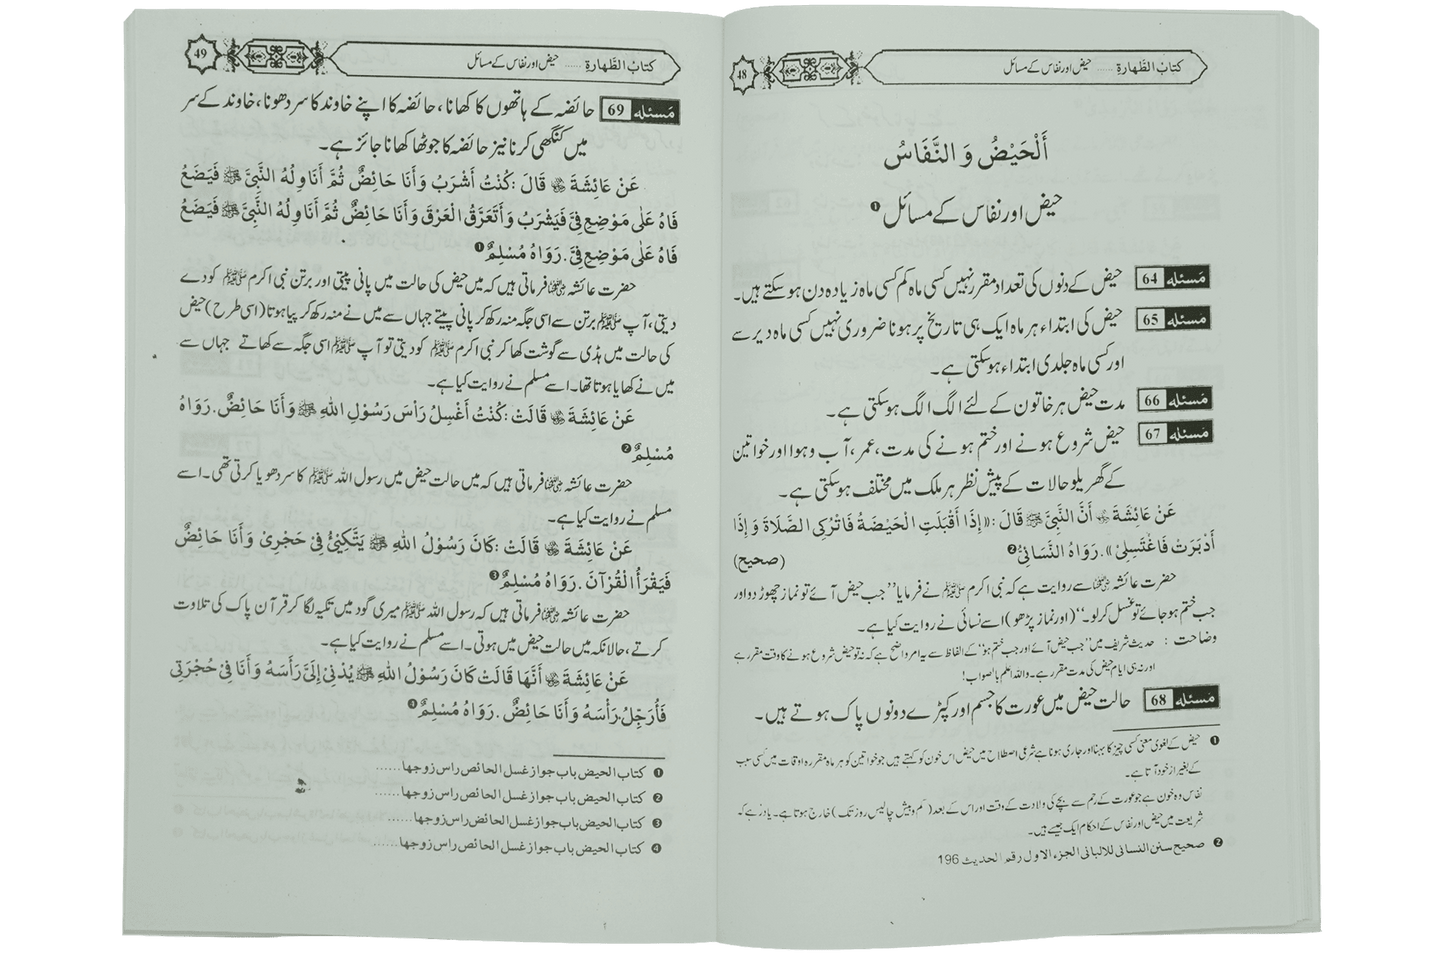 48
کتابُ الطَّهارةِ ...... حیض اور نفاس کے مسائل
أَلْحَيْضُ وَ النَّفَاسُ
حیض اور نفاس کے مسائل ❶
مَسئله 64 حیض کے دنوں کی تعداد مقرر نہیں کسی ماہ کم کسی ماہ زیادہ دن ہو سکتے ہیں۔
مَسئله 65 حیض کی ابتداء ہر ماہ ایک ہی تاریخ پر ہونا ضروری نہیں کسی ماہ دیر سے
اور کسی ماہ جلدی ابتداء ہو سکتی ہے۔
مَسئله 66 مدت حیض ہر خاتون کے لئے الگ الگ ہو سکتی ہے۔
مَسئله 67 حیض شروع ہونے اور ختم ہونے کی مدت، عمر، آب و ہوا اور خواتین
کے گھریلو حالات کے پیش نظر ہر ملک میں مختلف ہو سکتی ہے۔
عَنْ عَائِشَةَ رضی اللہ عنہا أَنَّ النَّبِيَّ ﷺ قَالَ :((إِذَا أَقْبَلَتِ الْحَيْضَةُ فَاتْرُكِى الصَّلَاةَ وَ إِذَا
أَدْبَرَتْ فَاغْتَسِلِىْ)). رَوَاهُ النَّسَائِىُّ ❷ (صحیح)
حضرت عائشہ رضی اللہ عنہا سے روایت ہے کہ نبی اکرم ﷺ نے فرمایا ’’جب حیض آئے تو نماز چھوڑ دو اور
جب ختم ہو جائے تو غسل کر لو۔‘‘ (اور نماز پڑھو) اسے نسائی نے روایت کیا ہے۔
وضاحت : حدیث شریف میں ’’جب حیض آئے اور جب ختم ہو‘‘ کے الفاظ سے یہ امر واضح ہے کہ نہ تو حیض شروع ہونے کا وقت مقرر ہے
اور نہ ہی ایام حیض کی مدت مقرر ہے۔ واللہ اعلم بالصواب!
مَسئله 68 حالت حیض میں عورت کا جسم اور کپڑے دونوں پاک ہوتے ہیں۔
❶ حیض کے لغوی معنی کسی چیز کا بہنا اور جاری ہونا ہے شرعی اصطلاح میں حیض اس خون کو کہتے ہیں جو خواتین کو ہر ماہ مقررہ اوقات میں کسی سبب
کے بغیر از خود آتا ہے۔
نفاس وہ خون ہے جو عورت کے رحم سے بچے کی ولادت کے وقت اور اس کے بعد (کم و بیش چالیس روز تک) خارج ہوتا ہے۔ یاد رہے کہ
شریعت میں حیض اور نفاس کے احکام ایک جیسے ہیں۔
❷ صحیح سنن النسائی للالبانی الجزء الاول رقم الحدیث 196
49
کتابُ الطَّهارةِ ...... حیض اور نفاس کے مسائل
مَسئله 69 حائضہ کے ہاتھوں کا کھانا، حائضہ کا اپنے خاوند کا سر دھونا، خاوند کے سر
میں کنگھی کرنا نیز حائضہ کا جوٹھا کھانا جائز ہے۔
عَنْ عَائِشَةَ رضی اللہ عنہا قَالَ :كُنْتُ أَشْرَبُ وَ أَنَا حَائِضٌ ثُمَّ أُنَاوِلُهُ النَّبِيَّ ﷺ فَيَضَعُ
فَاهُ عَلٰى مَوْضِعِ فِىَّ فَيَشْرَبُ وَ أَتَعَرَّقُ الْعَرْقَ وَ أَنَا حَائِضٌ ثُمَّ أُنَاوِلُهُ النَّبِيَّ ﷺ فَيَضَعُ
فَاهُ عَلٰى مَوْضِعِ فِىَّ. رَوَاهُ مُسْلِمٌ ❶
حضرت عائشہ رضی اللہ عنہا فرماتی ہیں کہ میں حیض کی حالت میں پانی پیتی اور برتن نبی اکرم ﷺ کو دے
دیتی، آپ ﷺ برتن سے اسی جگہ منہ رکھ کر پانی پیتے جہاں سے میں نے منہ رکھ کر پیا ہوتا (اسی طرح) حیض
کی حالت میں ہڈی سے گوشت کھا کر نبی اکرم ﷺ کو دیتی تو آپ ﷺ اسی جگہ سے کھاتے جہاں سے
میں نے کھایا ہوتا تھا۔ اسے مسلم نے روایت کیا ہے۔
عَنْ عَائِشَةَ رضی اللہ عنہا قَالَتْ :كُنْتُ أَغْسِلُ رَأْسَ رَسُوْلِ اللهِ ﷺ وَ أَنَا حَائِضٌ. رَوَاهُ
مُسْلِمٌ ❷
حضرت عائشہ رضی اللہ عنہا فرماتی ہیں کہ میں حالت حیض میں رسول اللہ ﷺ کا سر دھویا کرتی تھی۔ اسے
مسلم نے روایت کیا ہے۔
عَنْ عَائِشَةَ رضی اللہ عنہا قَالَتْ :كَانَ رَسُوْلُ اللهِ ﷺ يَتَّكِئُ فِىْ حَجْرِىْ وَ أَنَا حَائِضٌ
فَيَقْرَأُ الْقُرْآنَ. رَوَاهُ مُسْلِمٌ ❸
حضرت عائشہ رضی اللہ عنہا فرماتی ہیں کہ رسول اللہ ﷺ میری گود میں تکیہ لگا کر قرآن پاک کی تلاوت
کرتے، حالانکہ میں حالت حیض میں ہوتی۔ اسے مسلم نے روایت کیا ہے۔
عَنْ عَائِشَةَ رضی اللہ عنہا أَنَّهَا قَالَتْ كَانَ رَسُوْلُ اللهِ ﷺ يُدْنِىْ إِلَىَّ رَأْسَهُ وَ أَنَا فِىْ حُجْرَتِىْ
فَأُرَجِّلُ رَأْسَهُ وَ أَنَا حَائِضٌ. رَوَاهُ مُسْلِمٌ ❹
❶ کتاب الحیض باب جواز غسل الحائض راس زوجها......
❷ کتاب الحیض باب جواز غسل الحائض راس زوجها......
❸ کتاب الحیض باب جواز غسل الحائض راس زوجها......
❹ کتاب الحیض باب جواز غسل الحائض راس زوجها......